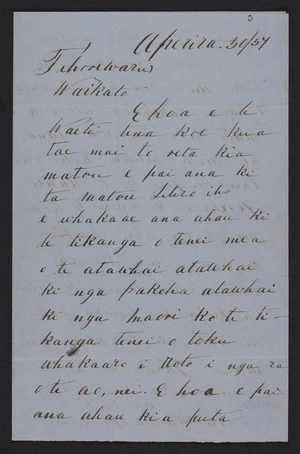 3
Aperira. 30/57
Waikato
E hoa e te
Waitī tena koe kua
tae mai to reta kia
matou e pai ana ki
ta matou titiro iho
e whakaae ana ahau ki
te tikanga o tenei mea
o te atawhai atawhai
ki nga pakeha atawhai
ki nga maori ko te ti-
kanga tenei o toku
whakaaro i roto i nga ra
o te ao, nei. E hoa e pai
ana ahau kia puta